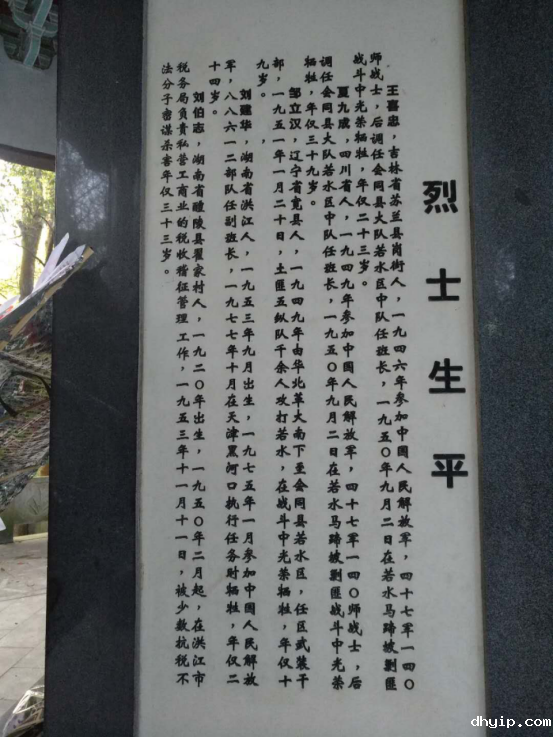 烈士生平
王喜忠，吉林省苏兰县岗街人，一九四六年参加中国人民解放军，四十七军一四〇
师战士，后调任会同县大队若水区中队任班长，一九五〇年九月二日在若水马蹄坡剿匪
战斗中光荣牺牲，年仅二十三岁。
夏九成，四川省人，一九四九年参加中国人民解放军，四十七军一四〇师战士，后
调任会同县大队若水区中队任班长，一九五〇年九月二日在若水马蹄坡剿匪战斗中光荣
牺牲，年仅三十九岁。
邹立汉，辽宁省宽县人，一九四九年由华北革大南下至会同县若水区，任区武装干
部，一九五一年一月二十日，土匪五纵队千余人攻打若水，在战斗中光荣牺牲，年仅十
九岁。
刘建华，湖南省洪江人，一九五三年九月出生，一九七五年一月参加中国人民解放
军，八八六一二部队任副班长，一九七七年十月在天津黑河口执行任务时牺牲，年仅二
十四岁。
刘伯志，湖南省醴陵县瞿家村人，一九二〇年出生，一九五〇年二月起，在洪江市
税务局负责私营工商业的税收稽征管理工作，一九五三年十一月十一日，被少数抗税不
法分子密谋杀害年仅三十三岁。
dhyip.com